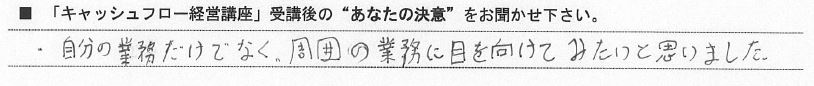 ■ 「キャッシュフロー経営講座」受講後の“あなたの決意”をお聞かせ下さい。
・自分の業務だけでなく、周囲の業務に目を向けてみたいと思いました。